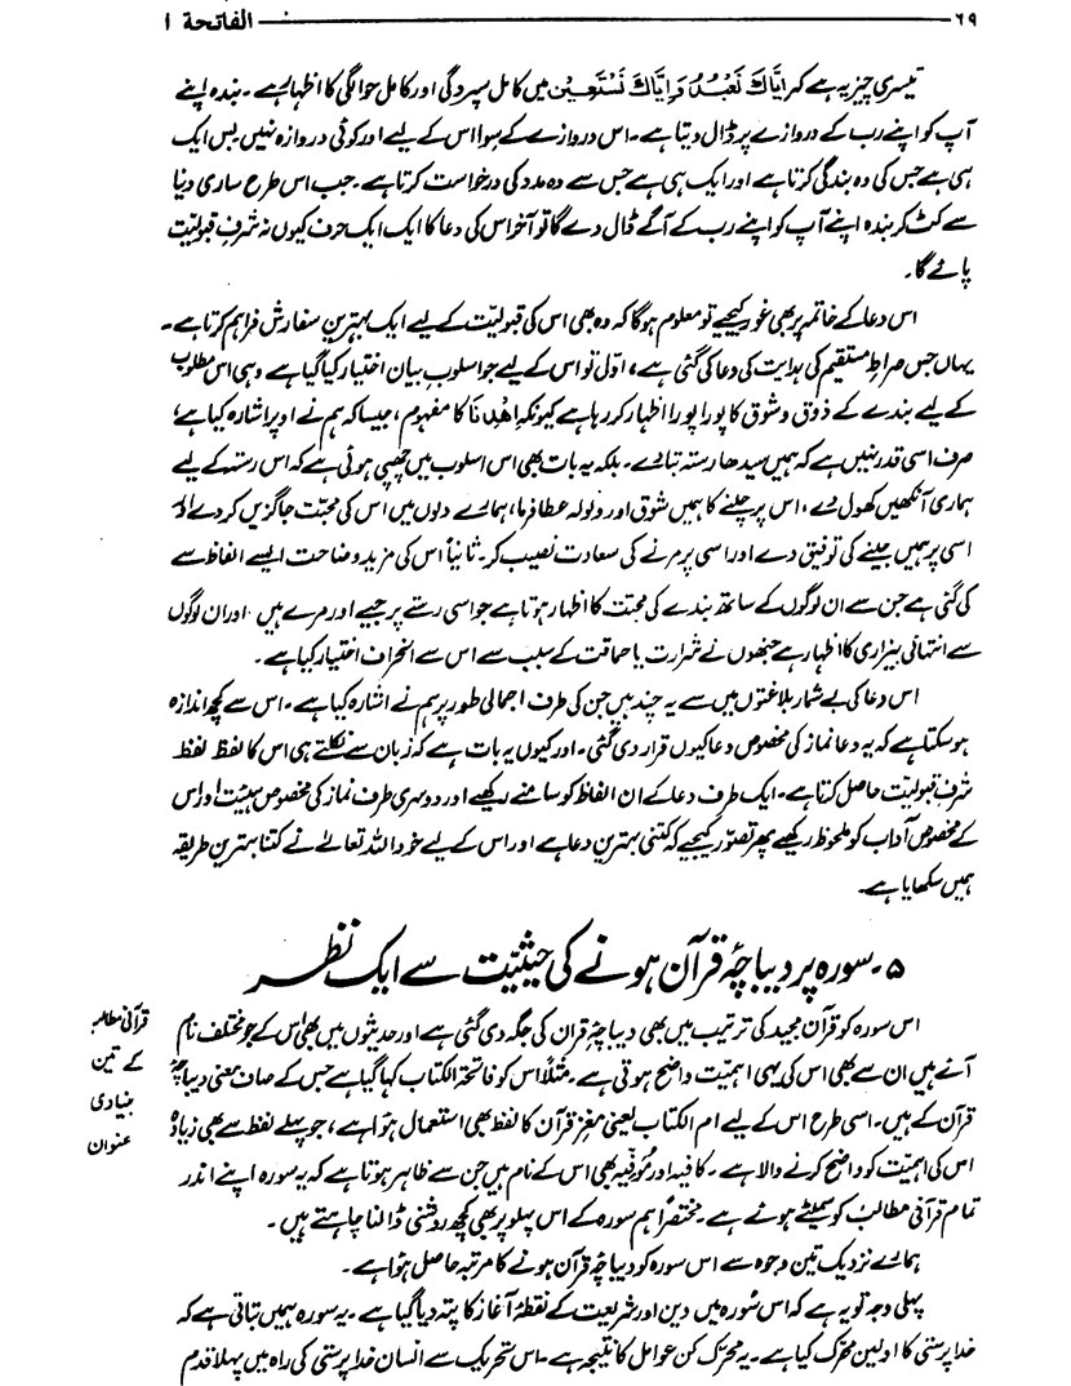 ۶۹ ــــــ الفاتحة ۱
تیسری چیز یہ ہے کہ اِیَّاكَ نَعْبُدُ وَ اِیَّاكَ نَسْتَعِیْن میں کامل سپردگی اور کامل حوالگی کا اظہار ہے۔ بندہ اپنے
آپ کو اپنے رب کے دروازے پر ڈال دیتا ہے۔ اس دروازے کے سوا اس کے لیے اور کوئی دروازہ نہیں بس ایک
ہی ہے جس کی وہ بندگی کرتا ہے اور ایک ہی ہے جس سے وہ مدد کی درخواست کرتا ہے۔ جب اس طرح ساری دنیا
سے کٹ کر بندہ اپنے آپ کو اپنے رب کے آگے ڈال دے گا تو آخر اس کی دعا کا ایک ایک حرف کیوں نہ شرفِ قبولیّت
پائے گا۔
اس دعا کے خاتمہ پر بھی غور کیجیے تو معلوم ہوگا کہ وہ بھی اس کی قبولیّت کے لیے ایک بہترین سفارش فراہم کرتا ہے۔
یہاں جس صراطِ مستقیم کی ہدایت کی دعا کی گئی ہے، اوّل تو اس کے لیے جو اسلوبِ بیان اختیار کیا گیا ہے وہی اس مطلوب
کے لیے بندے کے ذوق و شوق کا پورا پورا اظہار کر رہا ہے کیونکہ اِھْدِنَا کا مفہوم، جیسا کہ ہم نے اوپر اشارہ کیا ہے،
صرف اسی قدر نہیں ہے کہ ہمیں سیدھا رستہ بتا دے۔ بلکہ یہ بات بھی اس اسلوب میں چھپی ہوئی ہے کہ اس رستہ کے لیے
ہماری آنکھیں کھول دے، اس پر چلنے کا ہمیں شوق اور ولولہ عطا فرما، ہمارے دلوں میں اس کی محبّت جاگزیں کر دے اور
اسی پر ہمیں جینے کی توفیق دے اور اسی پر مرنے کی سعادت نصیب کر۔ ثانیاً اس کی مزید وضاحت ایسے الفاظ سے
کی گئی ہے جن سے ان لوگوں کے ساتھ بندے کی محبّت کا اظہار ہوتا ہے جو اسی رستے پر جیے اور مرے ہیں اور ان لوگوں
سے انتہائی بیزاری کا اظہار ہے جنھوں نے شرارت یا حماقت کے سبب سے اس سے انحراف اختیار کیا ہے۔
اس دعا کی بے شمار بلاغتوں میں سے یہ چند ہیں جن کی طرف اجمالی طور پر ہم نے اشارہ کیا ہے۔ اس سے کچھ اندازہ
ہو سکتا ہے کہ یہ دعا نماز کی مخصوص دعا کیوں قرار دی گئی۔ اور کیوں یہ بات ہے کہ زبان سے نکلتے ہی اس کا لفظ لفظ
شرفِ قبولیّت حاصل کرتا ہے۔ ایک طرف دعا کے ان الفاظ کو سامنے رکھیے اور دوسری طرف نماز کی مخصوص ہیئت اور اس
کے مخصوص آداب کو ملحوظ رکھیے پھر تصوّر کیجیے کہ کتنی بہترین دعا ہے اور اس کے لیے خود اللہ تعالیٰ نے کتنا بہترین طریقہ
ہمیں سکھایا ہے۔
۵۔ سورہ پر دیباچۂ قرآن ہونے کی حیثیّت سے ایک نظر
قرآنی مطالب
کے تین
بنیادی
عنوان
اس سورہ کو قرآن مجید کی ترتیب میں بھی دیباچۂ قرآن کی جگہ دی گئی ہے اور حدیثوں میں بھی اس کے جو مختلف نام
آئے ہیں ان سے بھی اس کی یہی اہمیّت واضح ہوتی ہے۔ مثلاً اس کو فاتحۃ الکتاب کہا گیا ہے جس کے صاف معنی دیباچۂ
قرآن کے ہیں۔ اسی طرح اس کے لیے ام الکتاب یعنی مغزِ قرآن کا لفظ بھی استعمال ہوٗا ہے، جو پہلے لفظ سے بھی زیادہ
اس کی اہمیّت کو واضح کرنے والا ہے۔ کافیہ اور مُوَفِّیہ بھی اس کے نام ہیں جن سے ظاہر ہوتا ہے کہ یہ سورہ اپنے اندر
تمام قرآنی مطالب کو سمیٹے ہوئے ہے۔ مختصراً ہم سورہ کے اس پہلو پر بھی کچھ روشنی ڈالنا چاہتے ہیں۔
ہمارے نزدیک تین وجوہ سے اس سورہ کو دیباچۂ قرآن ہونے کا مرتبہ حاصل ہوٗا ہے۔
پہلی وجہ تو یہ ہے کہ اس سُورہ میں دین اور شریعت کے نقطۂ آغاز کا پتہ دیا گیا ہے۔ یہ سورہ ہمیں بتاتی ہے کہ
خدا پرستی کا اوّلین محرّک کیا ہے۔ یہ محرّک کن عوامل کا نتیجہ ہے۔ اس تحریک سے انسان خدا پرستی کی راہ میں پہلا قدم